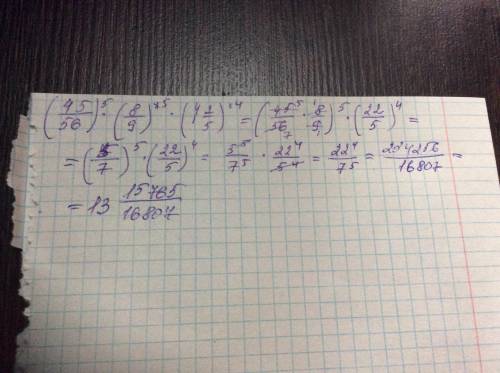 (45/56)^5 · (8/9)^5 · (4 2/5)^4 = (45/56 · 8/9)^5 · (22/5)^4 =
= (5/7)^5 · (22/5)^4 = 5^5/7^5 · 22^4/5^4 = 22^4/7^5 = 234256/16807 =
= 13 15765/16807